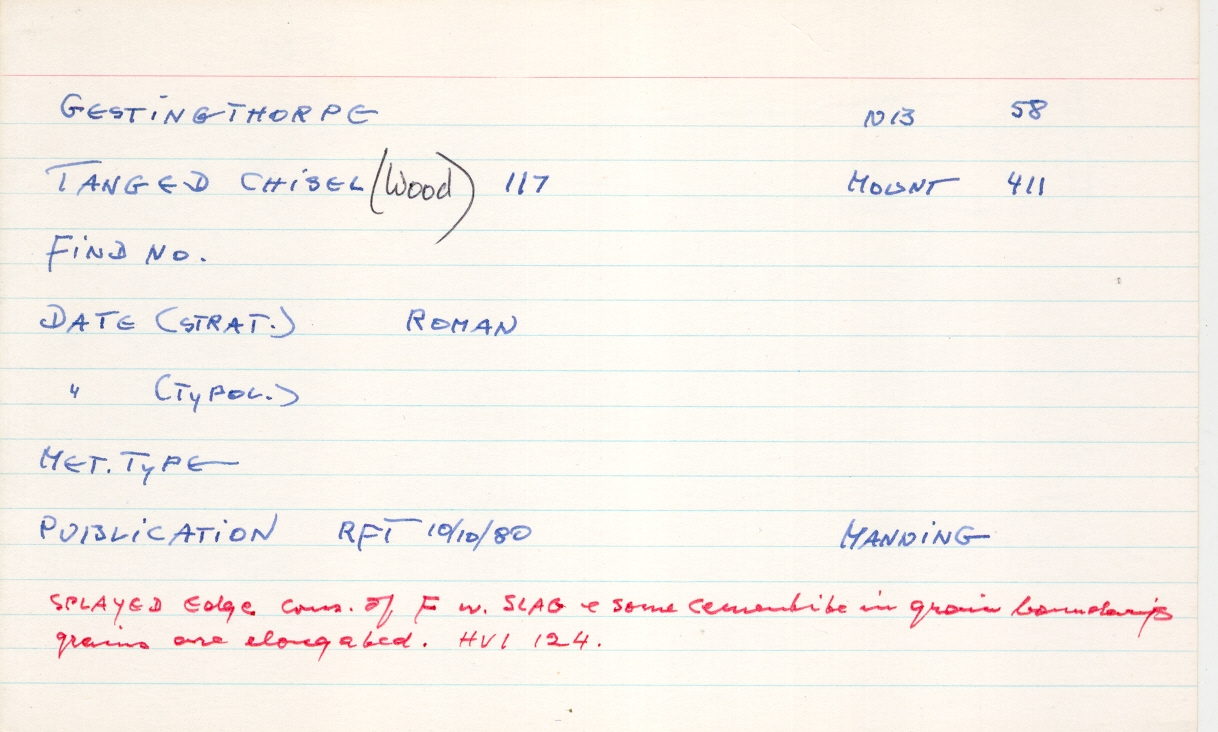 GESTINGTHORPE NB 58
TANGED CHISEL (Wood) 117 MOUNT 411
FIND NO.
DATE (STRAT.) ROMAN
" (TYPOL.)
MET. TYPE
PUBLICATION RFT 10/10/80 MANNING
SPLAYED Edge cons. of F w. SLAG + some cementite in grain boundaries
grains are elongated. HV1 124.